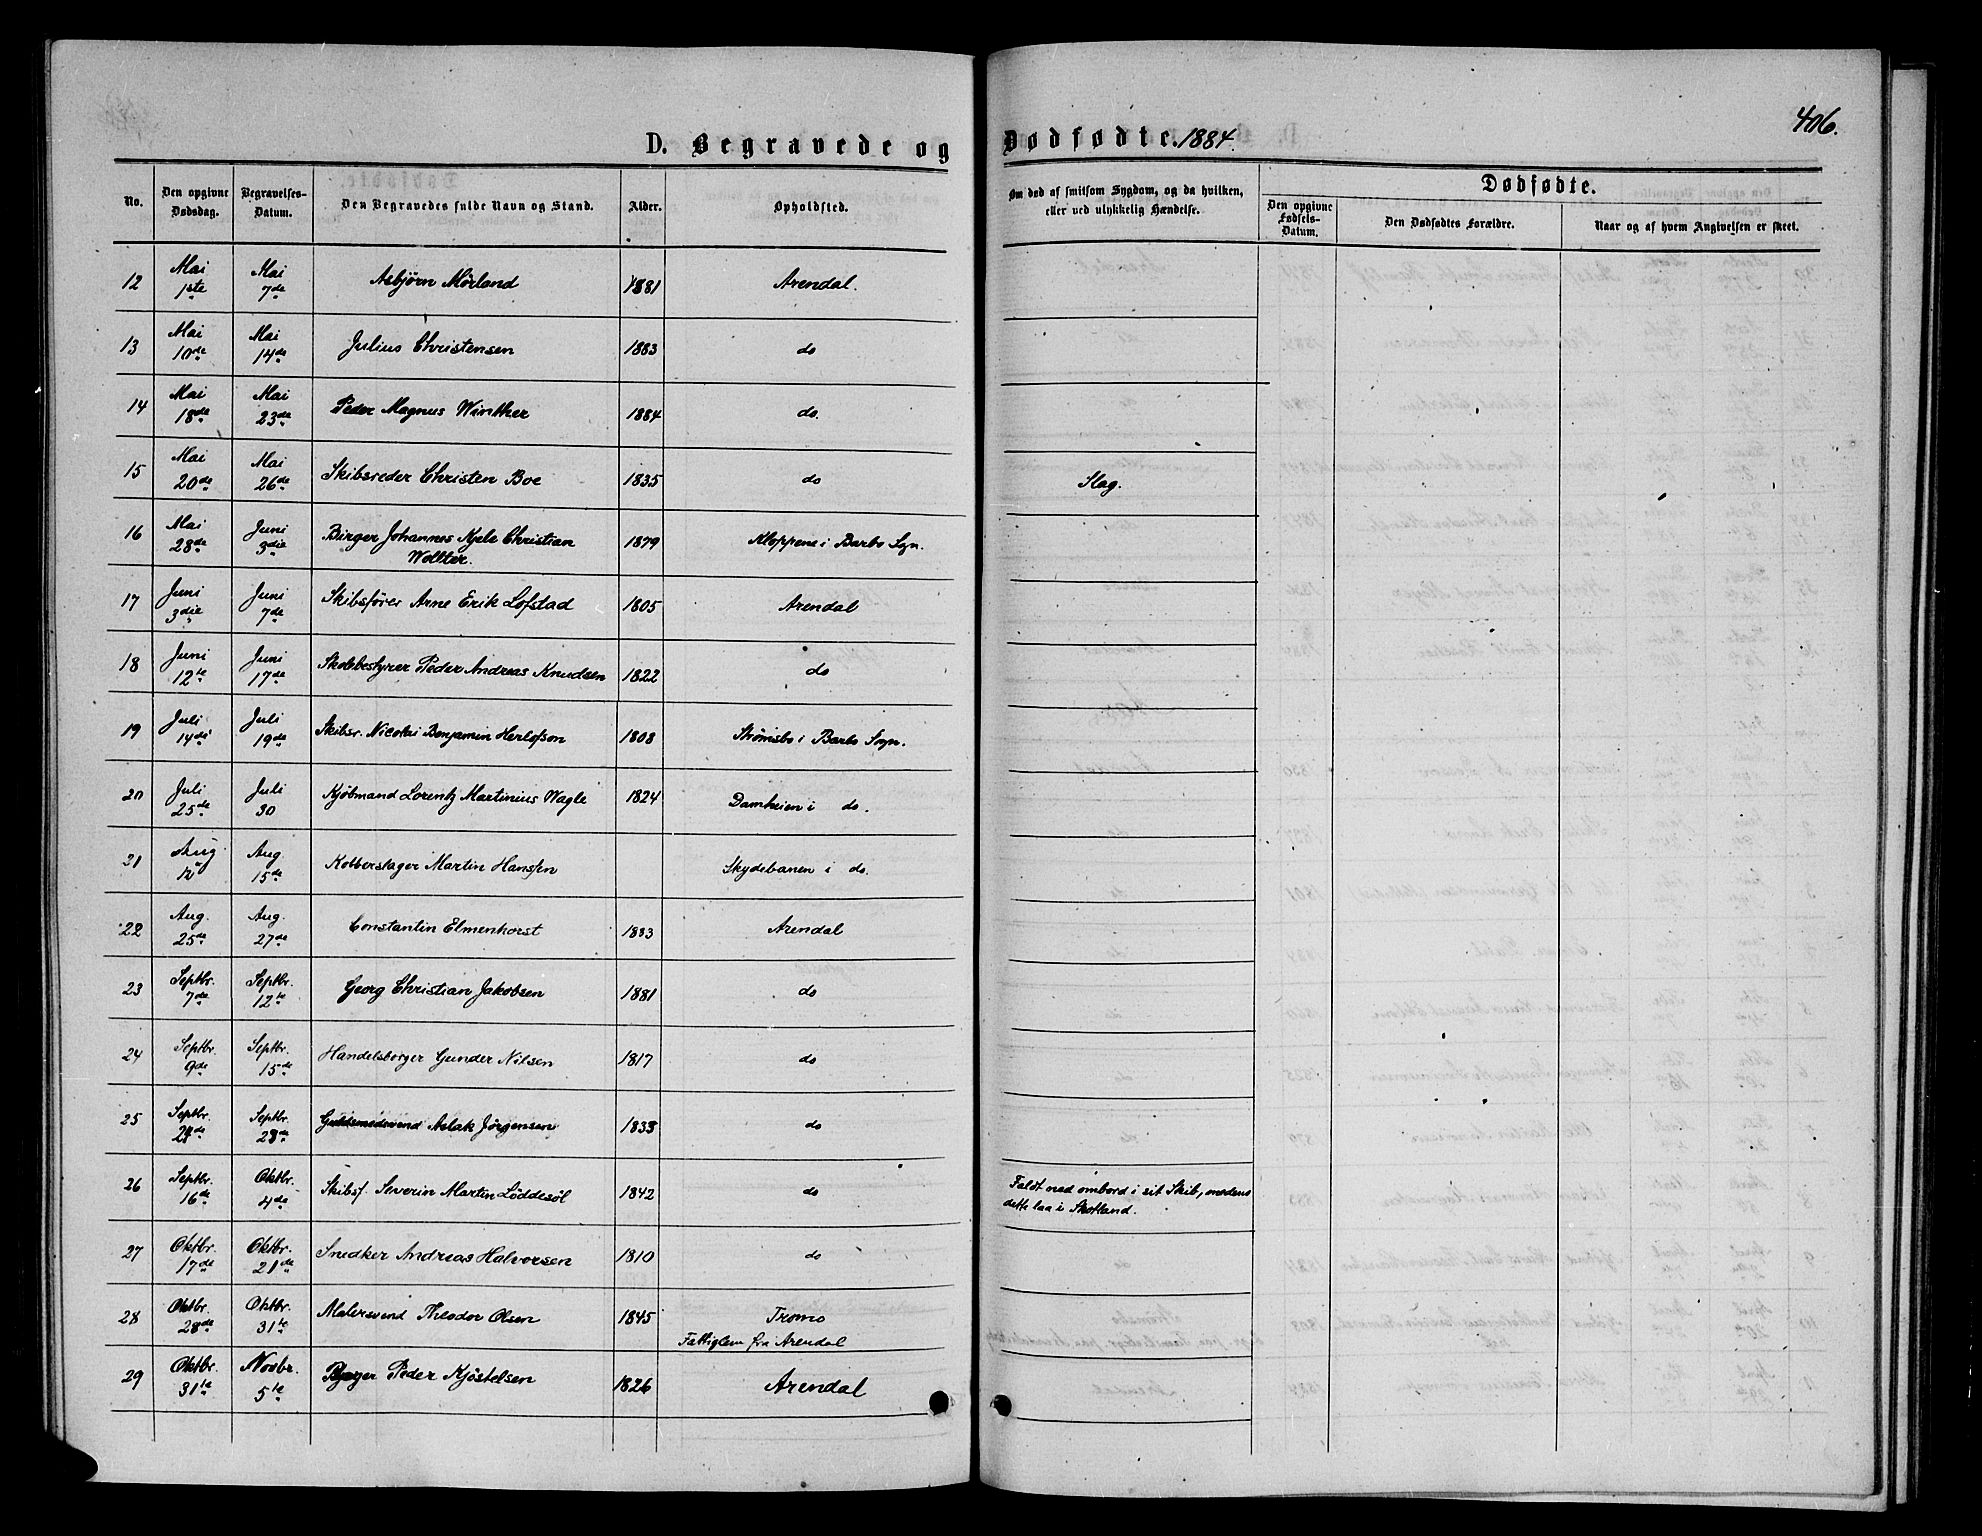 406.
D. Begravede og Dødfødte. 1884.
No. | Den opgivne Dødsdag. | Begravelses-Datum. | Den Begravedes fulde Navn og Stand. | Alder. | Opholdsted. | Om død af smitsom Sygdom, og da hvilken, eller ved ulykkelig Hændelse. | Dødfødte.
Den opgivne Fødsels-Datum. | Den Dødfødtes Forældre. | Naar og af hvem Angivelsen er skeet.
12 | Mai 1ste | Mai 7de | Asbjørn Mørland | 1881 | Arendal.
13 | Mai 10de | Mai 14de | Julius Christensen | 1883 | do
14 | Mai 18de | Mai 23de | Peder Magnus Winther | 1884 | do.
15 | Mai 20de | Mai 26de | Skibsreder Christen Boe | 1835 | do | Slag.
16 | Mai 28de | Juni 3die | Birger Johannes Kjele Christian Wollter. | 1879 | Kloppene i Barbo Sogn.
17 | Juni 3die | Juni 7de | Skibsfører Arne Erik Lofstad | 1805 | Arendal
18 | Juni 12te | Juni 17de | Skolebestyrer Peder Andreas Knudsen | 1822 | do
19 | Juli 14de | Juli 19de | Skibsr. Nicolai Benjamin Herlofson | 1808 | Strømsbo i Barbo Sogn.
20 | Juli 25de | Juli 30 | Kjøbmand Lorentz Martinius Wagle | 1824 | Damheien i do.
21 | Aug 12 | Aug. 15de | Kobberslager Martin Hanssen | | Skydebanen i do.
22 | Aug. 25de | Aug. 27de | Constantin Elmenhorst | 1883 | Arendal
23 | Septbr. 7de | Septbr. 12te | Georg Christian Jakobsen | 1881 | do
24 | Septbr. 9de | Septbr. 15de | Handelsborger Gunder Nilsen | 1817 | do
25 | Septbr. 24de | Septbr. 28de | Guldsmedsvend Aslak Jørgensen | 1833 | do
26 | Septbr. 16de | Oktbr. 4de | Skibsf. Severin Martin Löddesöl | 1842 | do | Faldt ned ombord i sit Skib, medens dette laa i Skotland.
27 | Oktbr. 17de | Oktbr. 21de | Snedker Andreas Halvorsen | 1810 | do
28 | Oktbr. 28de | Oktbr. 31te | Malersvend Theodor Olsen | 1845 | Tromø Fattiglem fra Arendal
29 | Oktbr. 31te | Novbr. 5te | Peder Kjöstelsen | 1826 | Arendal